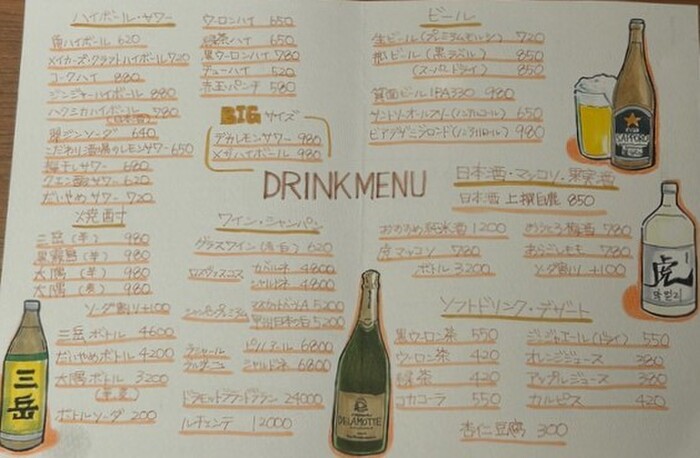 ハイボール・サワー
角ハイボール 620
メイカーズ・クラフトハイボール 720
コークハイ 880
ジンジャーハイボール 880
ハクミカハイボール 780
翠ジンソーダ 640
こだわり酒場のレモンサワー 650
梅干しサワー 680
クエン酸サワー 620
だいやめサワー 720
ウーロンハイ 650
緑茶ハイ 650
黒ウーロンハイ 780
デューハイ 520
赤玉パンチ 580
BIGサイズ
デカレモンサワー 980
メガハイボール 980
DRINK MENU
ビール
生ビール(プレミアムモルツ) 720
瓶ビール(黒ラベル) 850
(スーパードライ) 850
箕面ビール IPA330 980
サントリーオールフリー(ノンアルコール) 650
ビアデザミランド(ノンアルコール) 980
日本酒・マッコリ・果実酒
日本酒 上撰白鹿 850
おすすめ純米酒 1200
虎マッコリ 780
ボトル 3200
あらごし梅酒 780
あらごしもも 780
ソーダ割り +100
焼酎
三岳(芋) 980
黒霧島(芋) 980
大隅(芋) 980
大隅(麦) 980
ソーダ割り +100
三岳ボトル 4600
だいやめボトル 4200
大隅ボトル 3200
(芋,麦)
ボトルソーダ 200
三岳
ワイン・シャンパン
グラスワイン(赤白) 620
ロスヴァスコス
カベルネ 4800
シャルドネ 4800
マスカットベーリーA 5200
5200
ピノノアール 6800
シャルドネ 6800
24000
ルチェンテ 12000
DELAMOTTE
SAPPORO
虎
막걸리
ソフトドリンク・デザート
黒ウーロン茶 550
ウーロン茶 420
緑茶 420
コカコーラ 550
ジンジャエール(ドライ) 550
オレンジジュース 380
アップルジュース 380
カルピス 420
杏仁豆腐 300